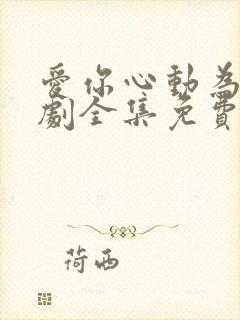 愛你心動為
劇全集免費
荷西